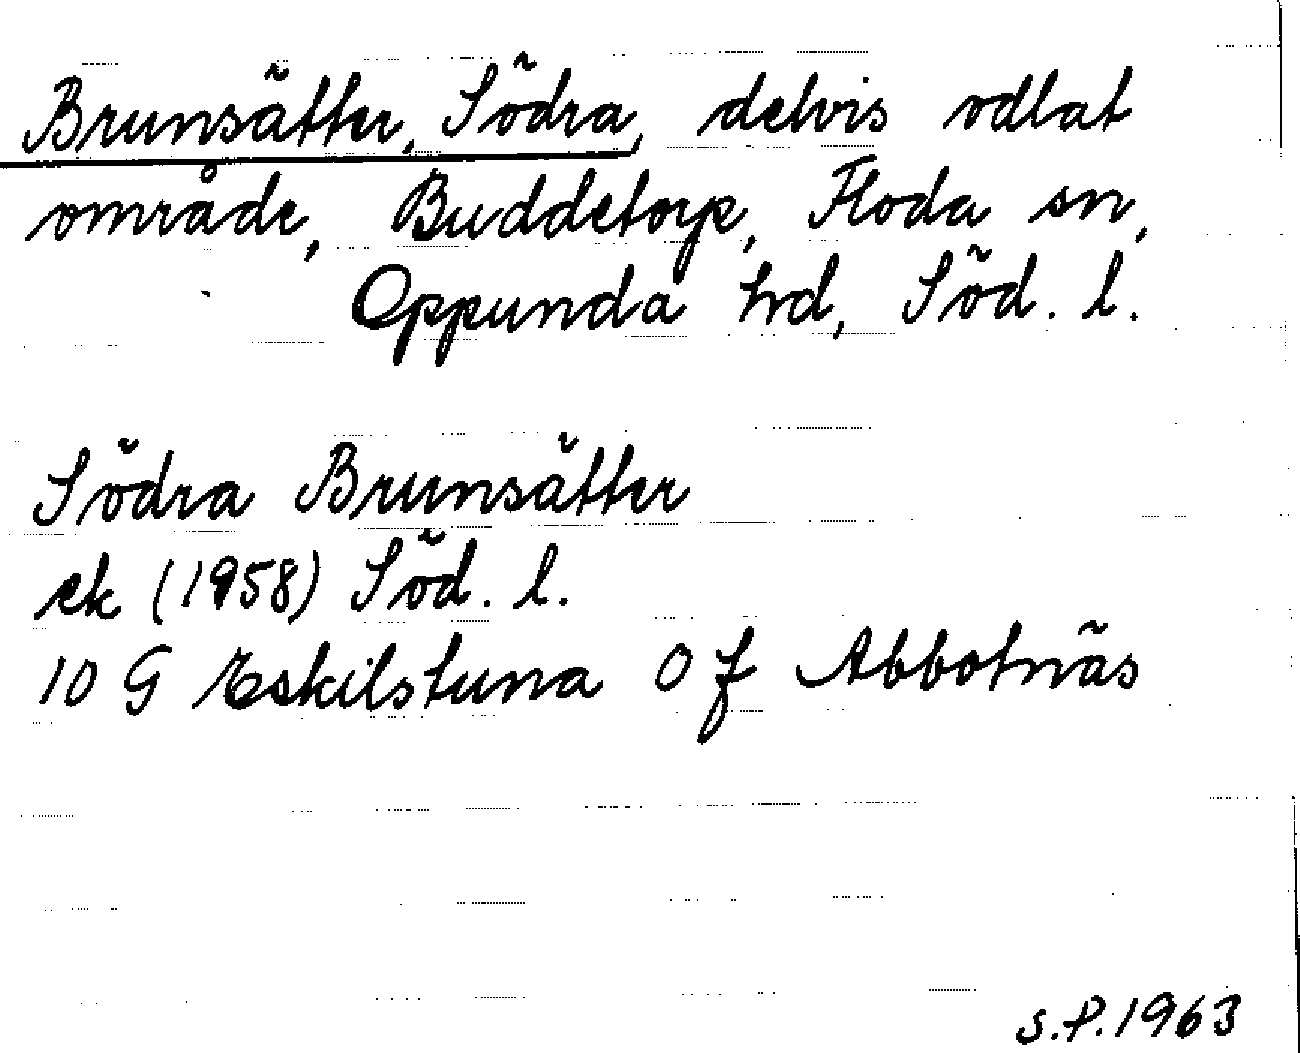 Brunsätter, Södra, delvis odlat
område, Buddetorp, Floda sn,
Oppunda hd, Söd. l.
Södra Brunsätter
ek (1958) Söd. l.
10 G Eskilstuna 0 f Abbotnäs
S.P. 1963